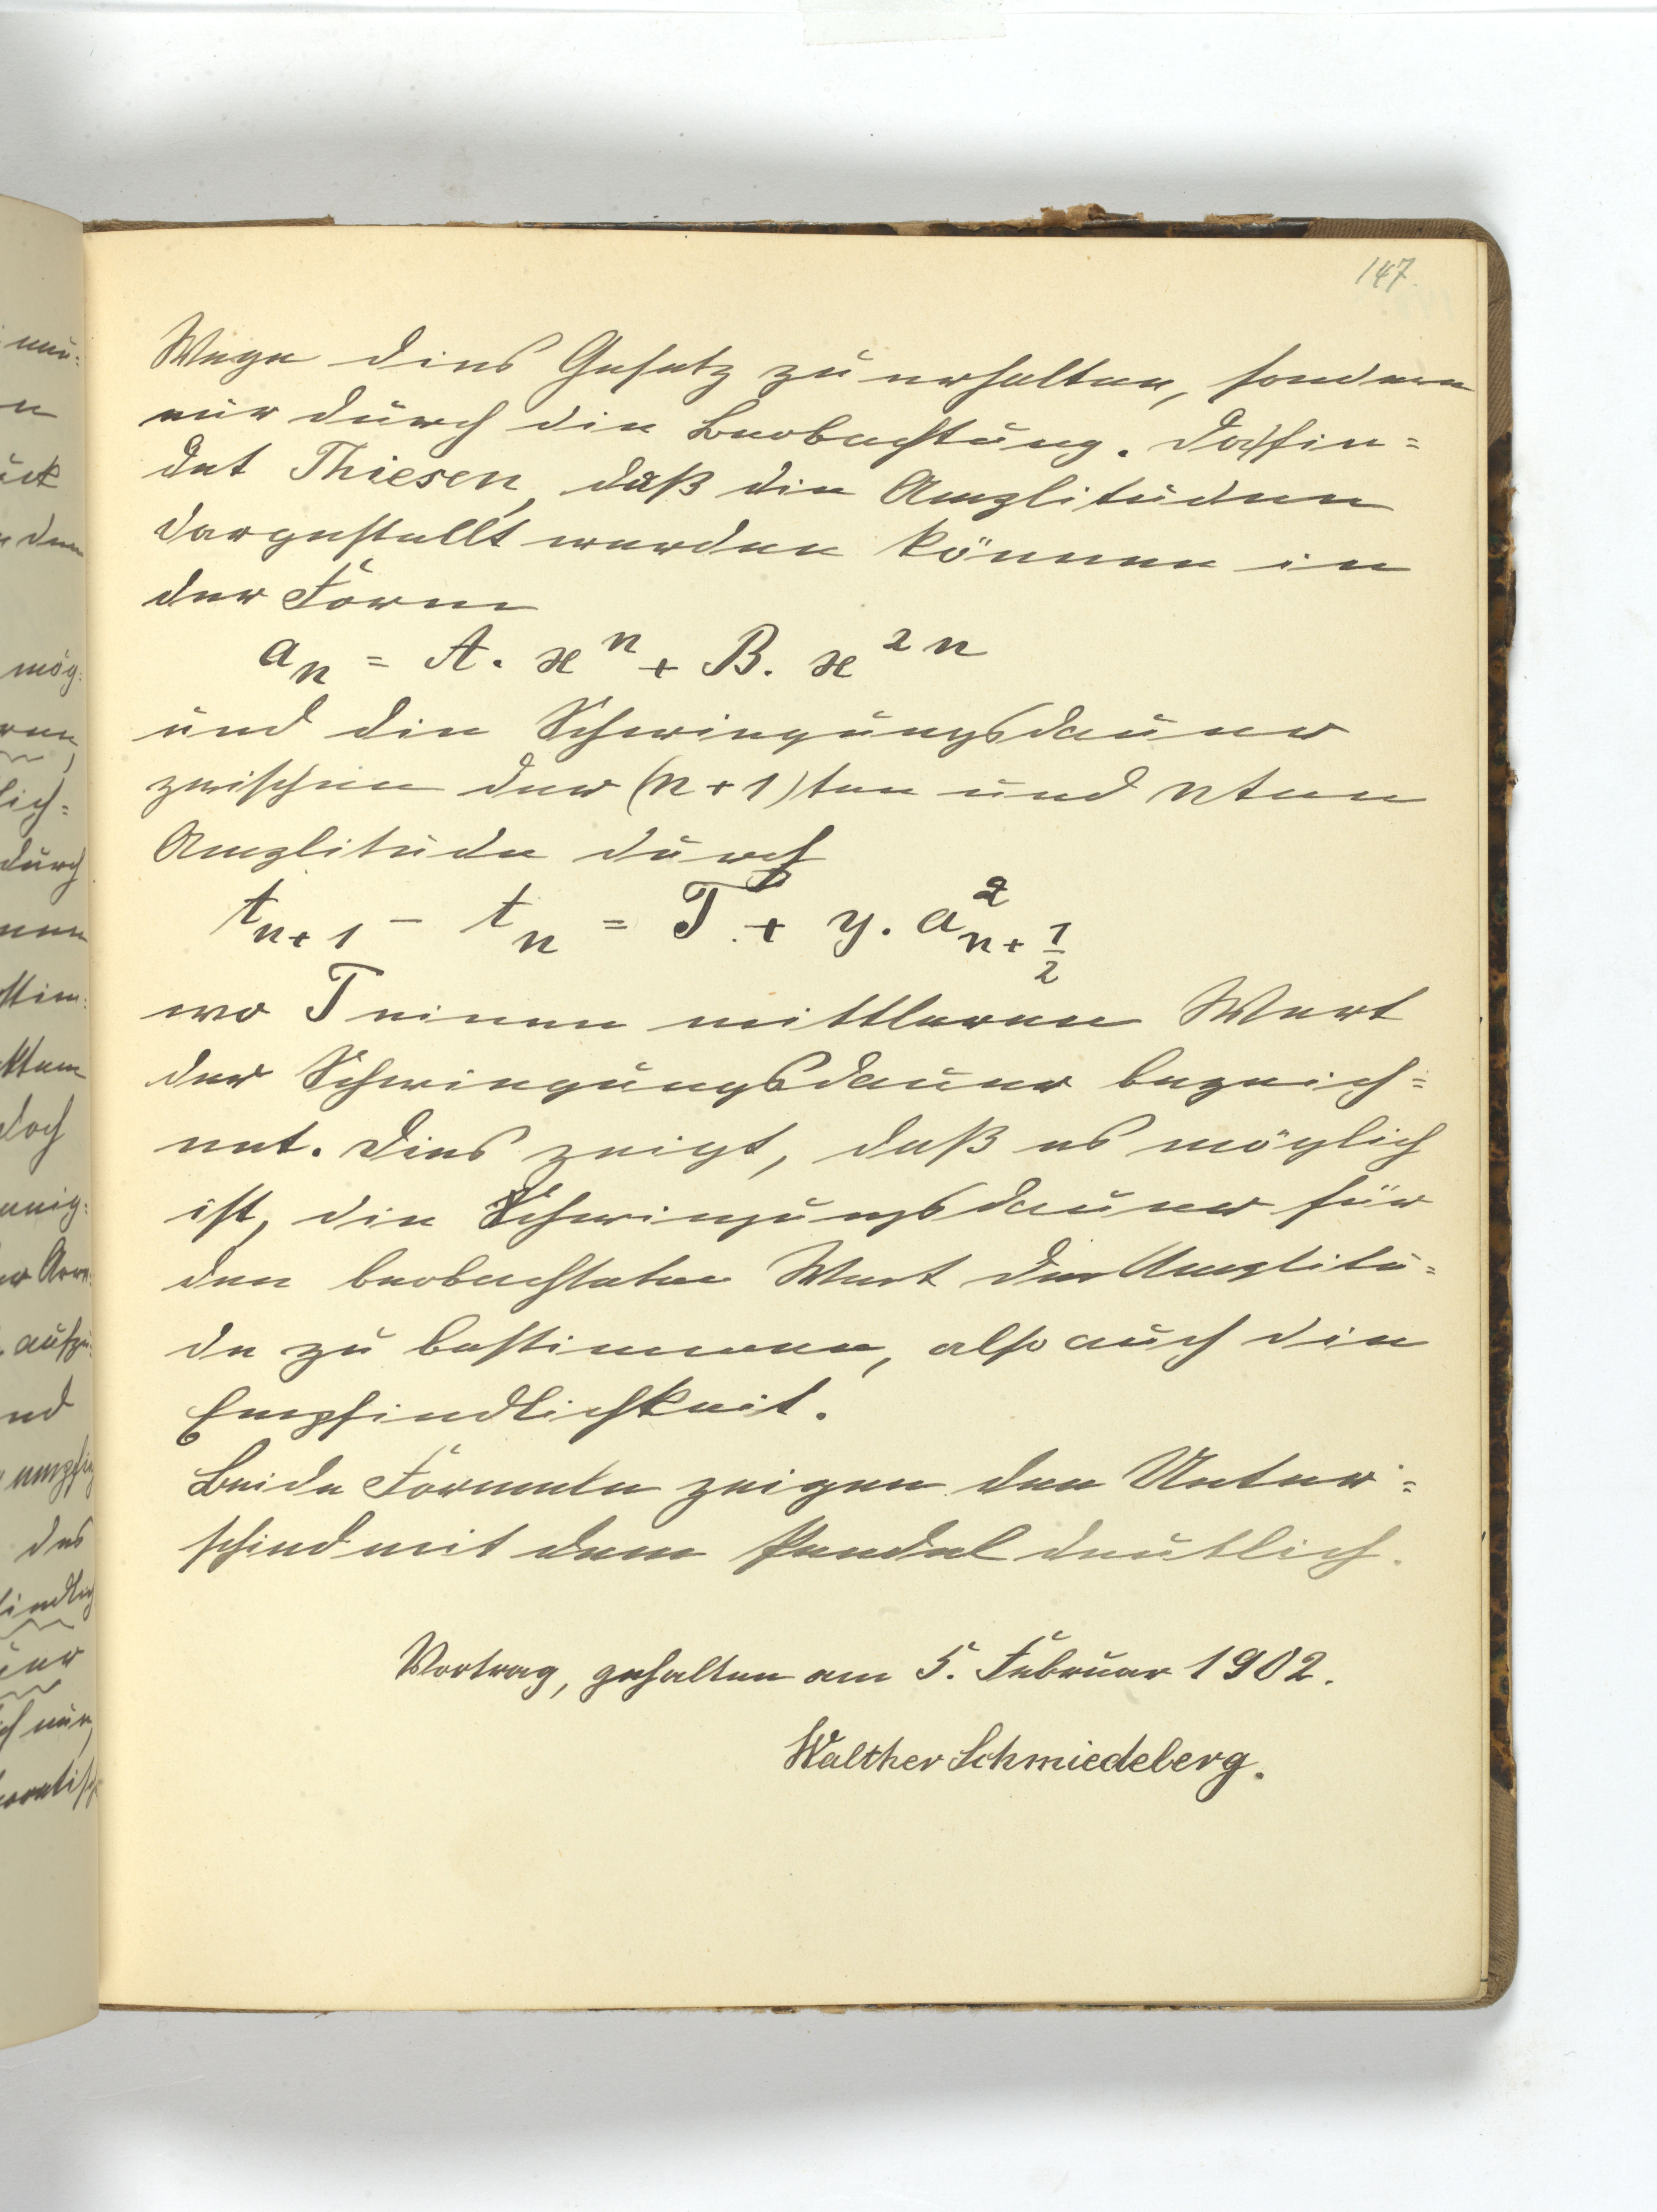 147.
Wege dies Gesetz zu erhalten, sondern
nur durch die Beobachtung. Da fin=
det Thiesen, daß die Amplituden
dargestellt werden können in
der Form
aₙ = A. xⁿ + B. x²ⁿ
und die Schwingungsdauer
zwischen der (n+1)ten und nten
Amplitude durch
tₙ₊₁ - tₙ = T + y. a²ₙ₊½
wo T einen mittleren Wert
der Schwingungsdauer bezeich=
net. Dies zeigt, daß es möglich
ist, die Schwingungsdauer für
den beobachteten Wert der Amplitu=
de zu bestimmen, also auch die
Empfindlichkeit.
Beide Formeln zeigen den Unter=
schied mit dem Pendel deutlich.
Vortrag, gehalten am 5. Februar 1902.
Walther Schmiedeberg.